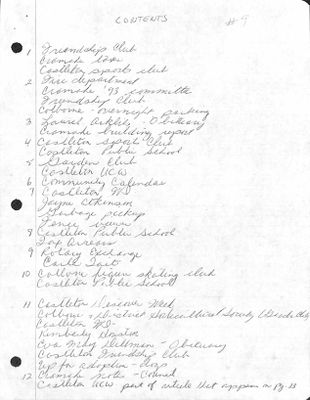 CONTENTS #9
1 Friendship Club
Cramahe
Castleton sports club
2 Fire department
Cramahe '93 committee
Friendship Club
Colborne - overnight parking
3 Laurel - Obituary
Cramahe building report
4 Castleton sports Club
Castleton Public School
5 Garden Club
Castleton UCW
6 Community Calendar
7 Castleton WI
Jayne Atkinson
Garbage pickup
Fence
8 Castleton Public School
Tax
9 Rotary Exchange
10 Colborne figure skating club
Castleton Public School
11 Castleton Week
Colborne & District Horticultural Society
Castleton WI-
Kimberly
Eva May - Obituary
Castleton Friendship Club
Up for adoption - dogs
12 Cramahe notes -
Castleton UCW part of article that appears on pg. 13